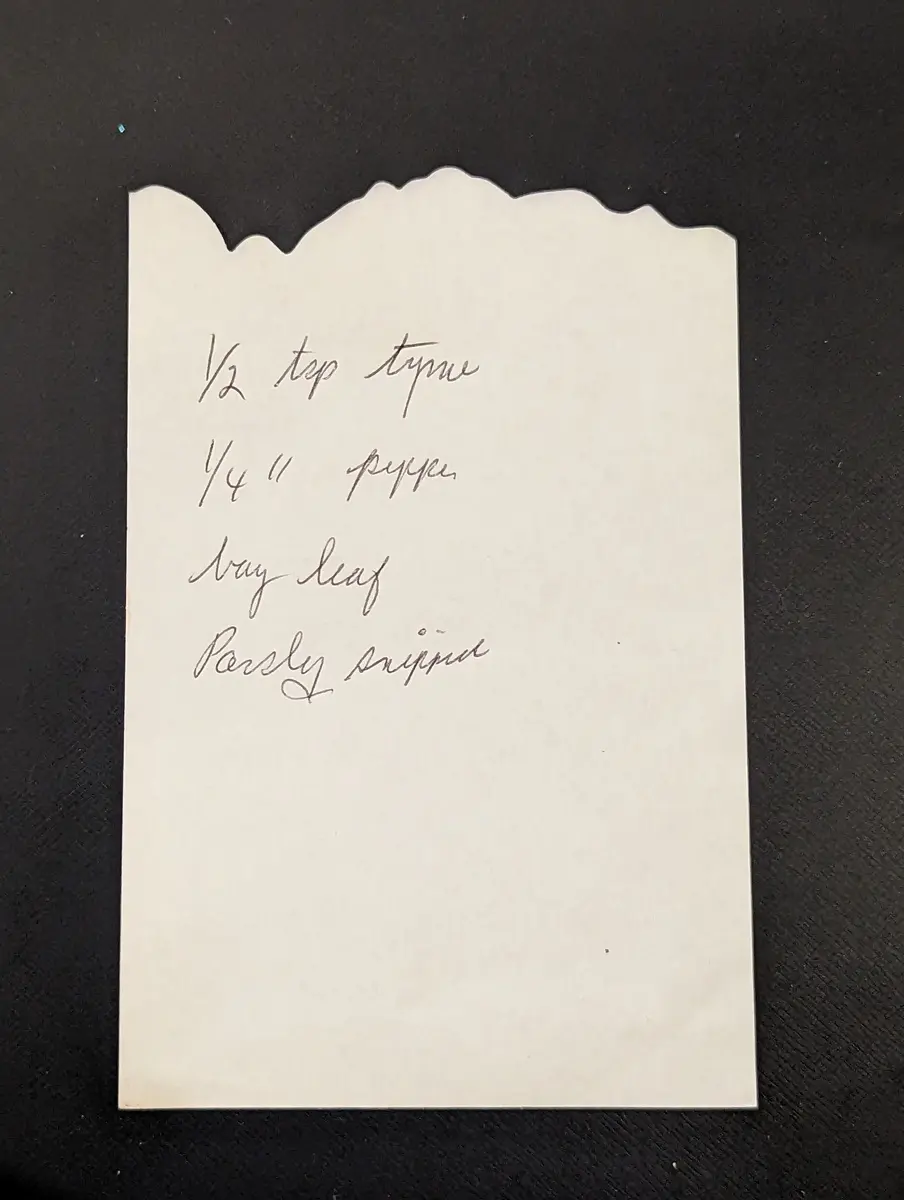 1/2 tsp tyme
1/4 " pepper
bay leaf
Parsly snipped